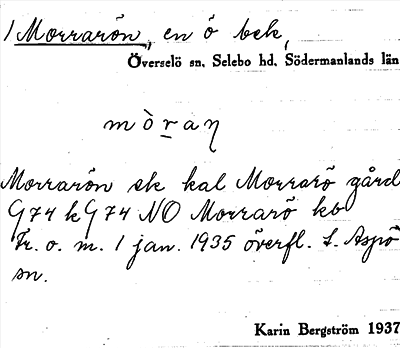 1 Morrarön, en ö bek,
Överselö sn, Selebo hd, Södermanlands län
mòraƞ
Morrarön sk kal Morrarö gård
G74 k G74 NO Morrarö kb
Fr. o. m. 1 jan. 1935 överfl. t. Aspö
sn.
Karin Bergström 1937